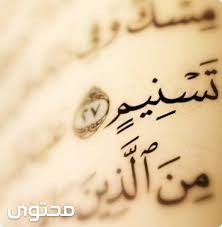 مِسْكٌ وَفِى
تَسْنِيمٍ ٢٧
مِنَ ٱلَّذِينَ
محتوى